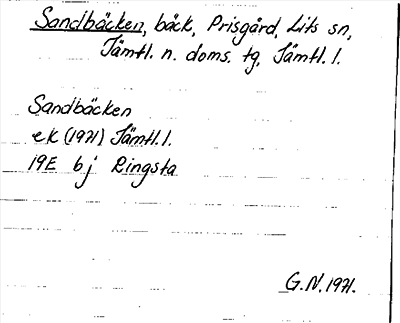 Sandbäcken, bäck, Prisgård, Lits sn,
Jämtl. n. doms. tg, Jämtl. l.
Sandbäcken
ek (1971) Jämtl. l.
19E b j Ringsta
G.N. 1971.